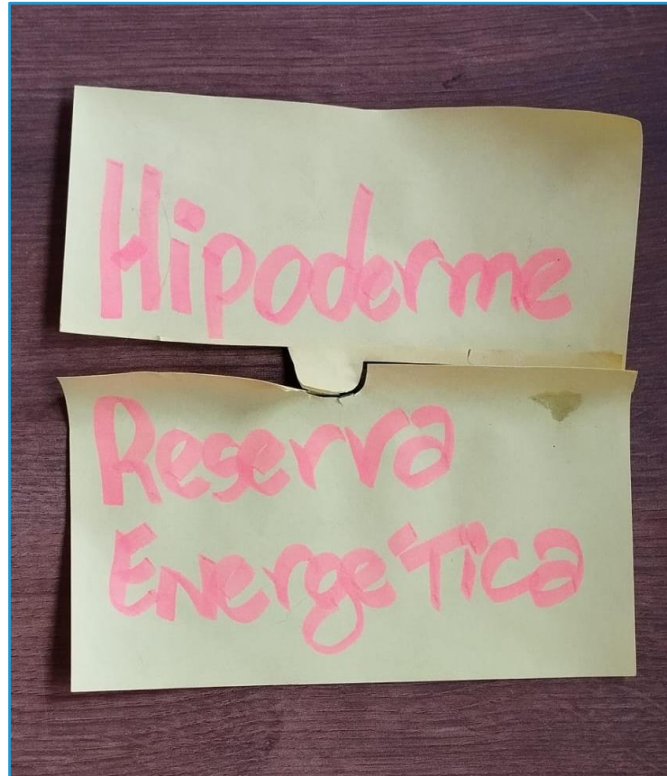 Hipoderme
Reserva
Energética